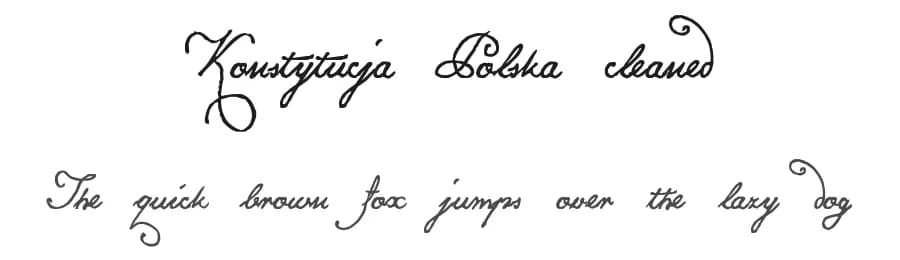 Konstytucja Polska cleaned
The quick brown fox jumps over the lazy dog